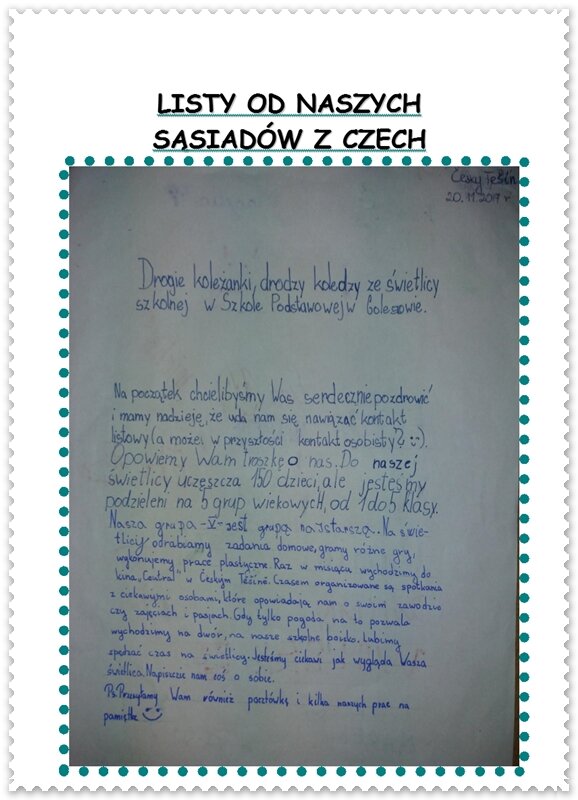 LISTY OD NASZYCH
SĄSIADÓW Z CZECH
Český Těšín
20.11.2017 r
Drogie koleżanki, drodzy koledzy ze świetlicy
szkolnej w Szkole Podstawowej w Goleszowie.
Na początek chcielibyśmy Was serdecznie pozdrowić
i mamy nadzieję, że uda nam się nawiązać kontakt
listowy (a może i w przyszłości kontakt osobisty? :-).
Opowiemy Wam troszkę o nas. Do naszej
świetlicy uczęszcza 150 dzieci, ale jesteśmy
podzieleni na 5 grup wiekowych, od 1 do 5 klasy.
Nasza grupa -V- jest grupą najstarszą. Na świe-
tlicy odrabiamy zadania domowe, gramy różne gry,
wykonujemy prace plastyczne. Raz w miesiącu wychodzimy do
kina "Central" w Českým Těšíně. Czasem organizowane są spotkania
z ciekawymi osobami, które opowiadają nam o swoim zawodzie
czy zajęciach i pasjach. Gdy tylko pogoda na to pozwala
wychodzimy na dwór, na nasze szkolne boisko. Lubimy
spędzać czas na świetlicy. Jesteśmy ciekawi jak wygląda Wasza
świetlica. Napiszcie nam coś o sobie.
Ps. Przesyłamy Wam również pocztówkę i kilka naszych prac na
pamiątkę